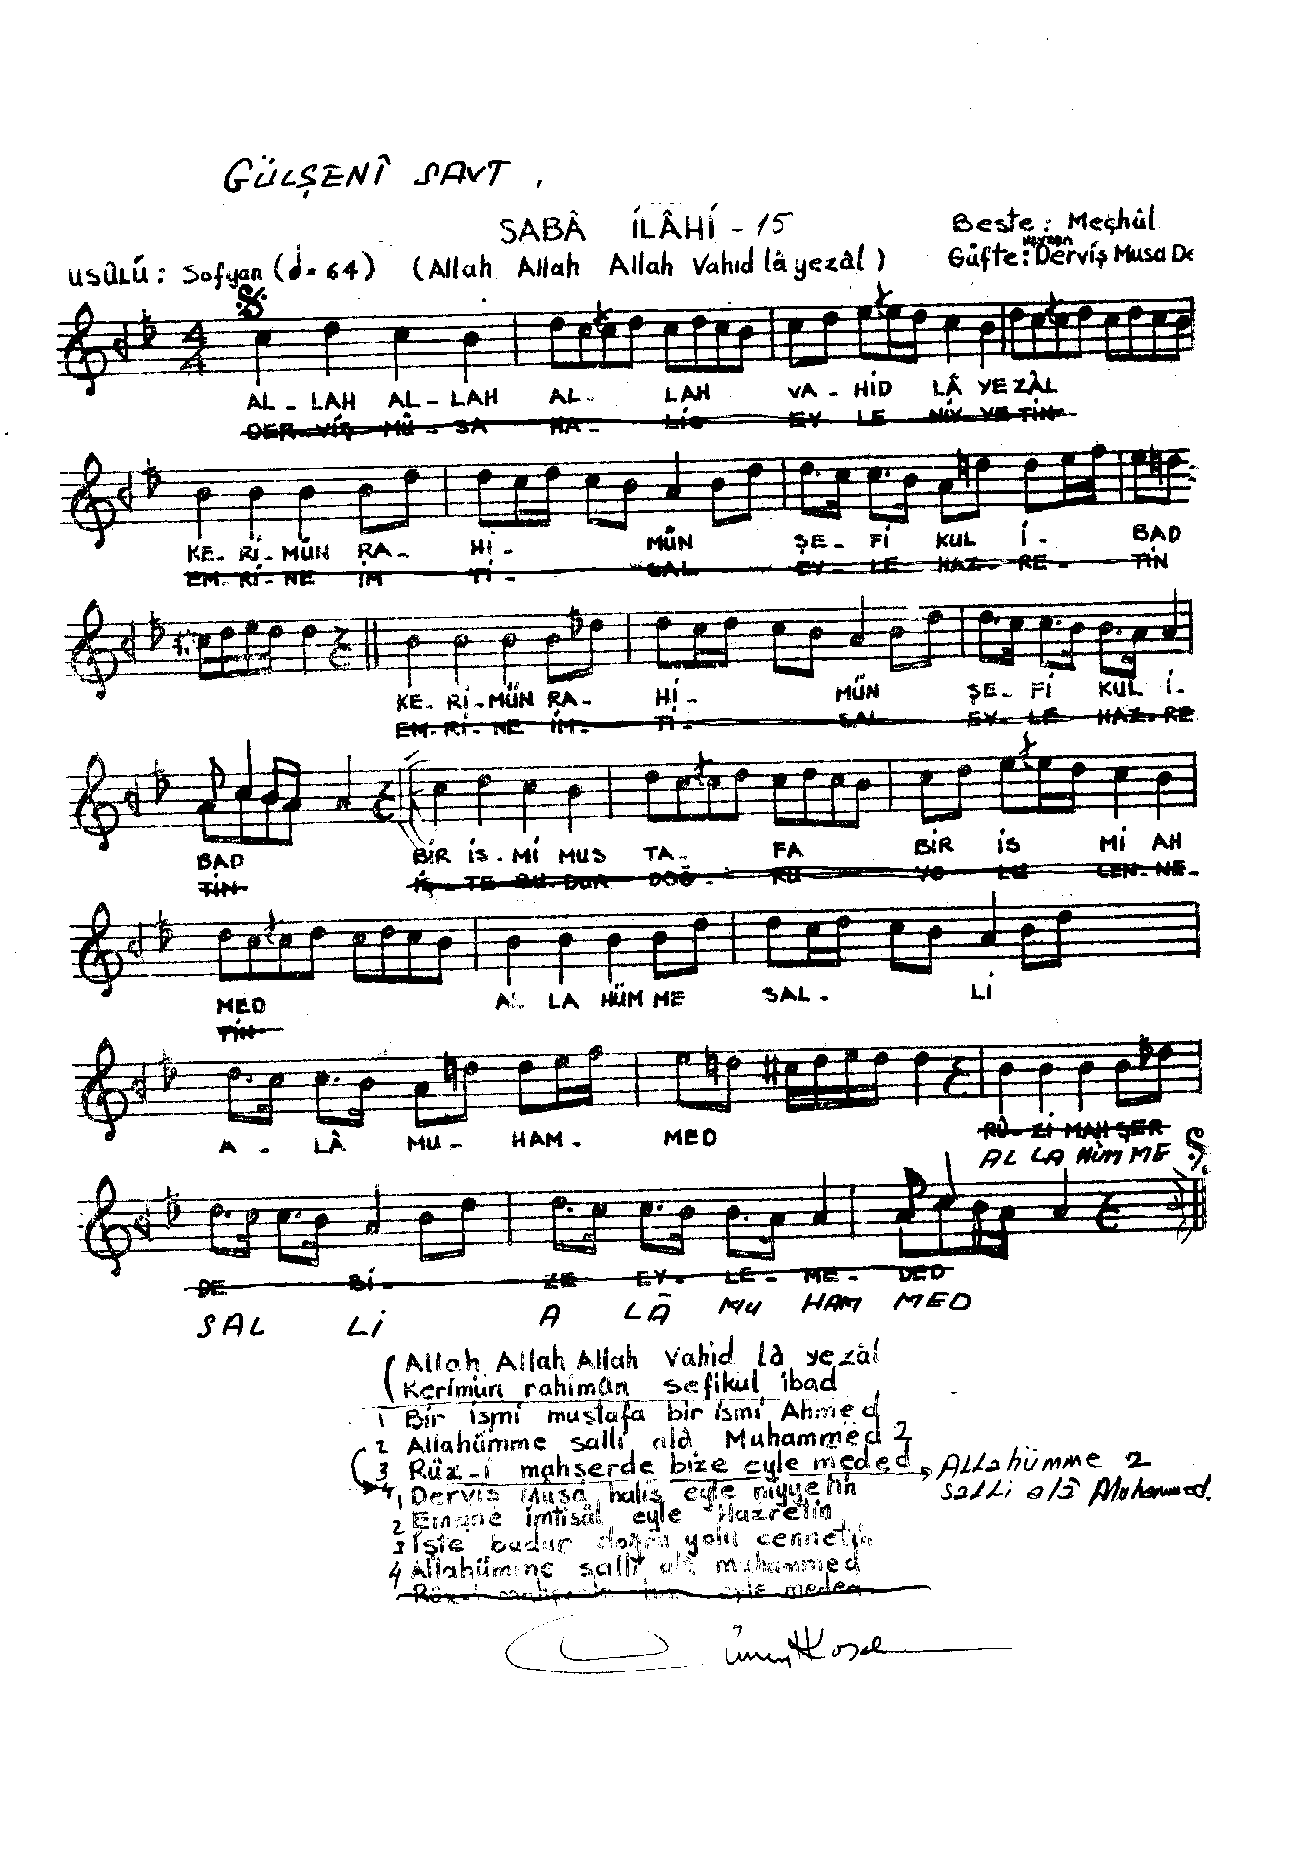 GÜLŞENÎ SAVT
SABÂ İLÂHİ - 15
Beste: Meçhûl
Güfte: Derviş Musa De
USÛLÜ: Sofyan (♩= 64) (Allah Allah Allah Vahid lâ yezâl)
4 4
AL - LAH AL - LAH AL - LAH VA - HİD LÂ YEZÂL
DER - VİŞ MÛ - SA HA - LİS EY LE NİY - YE TİN
KE - Rİ - MÜN RA - Hİ - MÜN ŞE - Fİ KUL İ - BAD
EM - Rİ - NE İM Tİ - SAL EY - LE HAZ - RE - TİN
KE - Rİ - MÜN RA - Hİ - MÜN ŞE - Fİ KUL İ -
EM - Rİ - NE İM - Tİ - SAL EY - LE HAZ - RE
BAD BİR İS - Mİ MUS TA - FA BİR İS Mİ AH
TİN İŞ - TE BU - DUR DOĞ - RU YO LU CEN - NE -
MED AL LA HÜM ME SAL - Lİ
TİN
A - LÂ MU - HAM - MED RÛ - Zİ MAH ŞER
AL LA HÜM ME
DE Bİ - ZE EY - LE - ME - DED
SAL Lİ A LÂ MU HAM MED
(Allah Allah Allah Vahid lâ yezâl
Kerimün rahimün şefikul ibad
1 Bir ismi mustafa bir ismi Ahmed
2 Allahümme salli alâ Muhammed 2
3 Rûz-i mahşerde bize eyle meded, Allahümme 2
salli alâ Muhammed.
4 1 Derviş Musa halis eyle niyyetin
2 Emrine imtisâl eyle Hazretin
3 İşte budur doğru yolu cennetin
4 Allahümme salli alâ muhammed
Rûz-i eyle meded